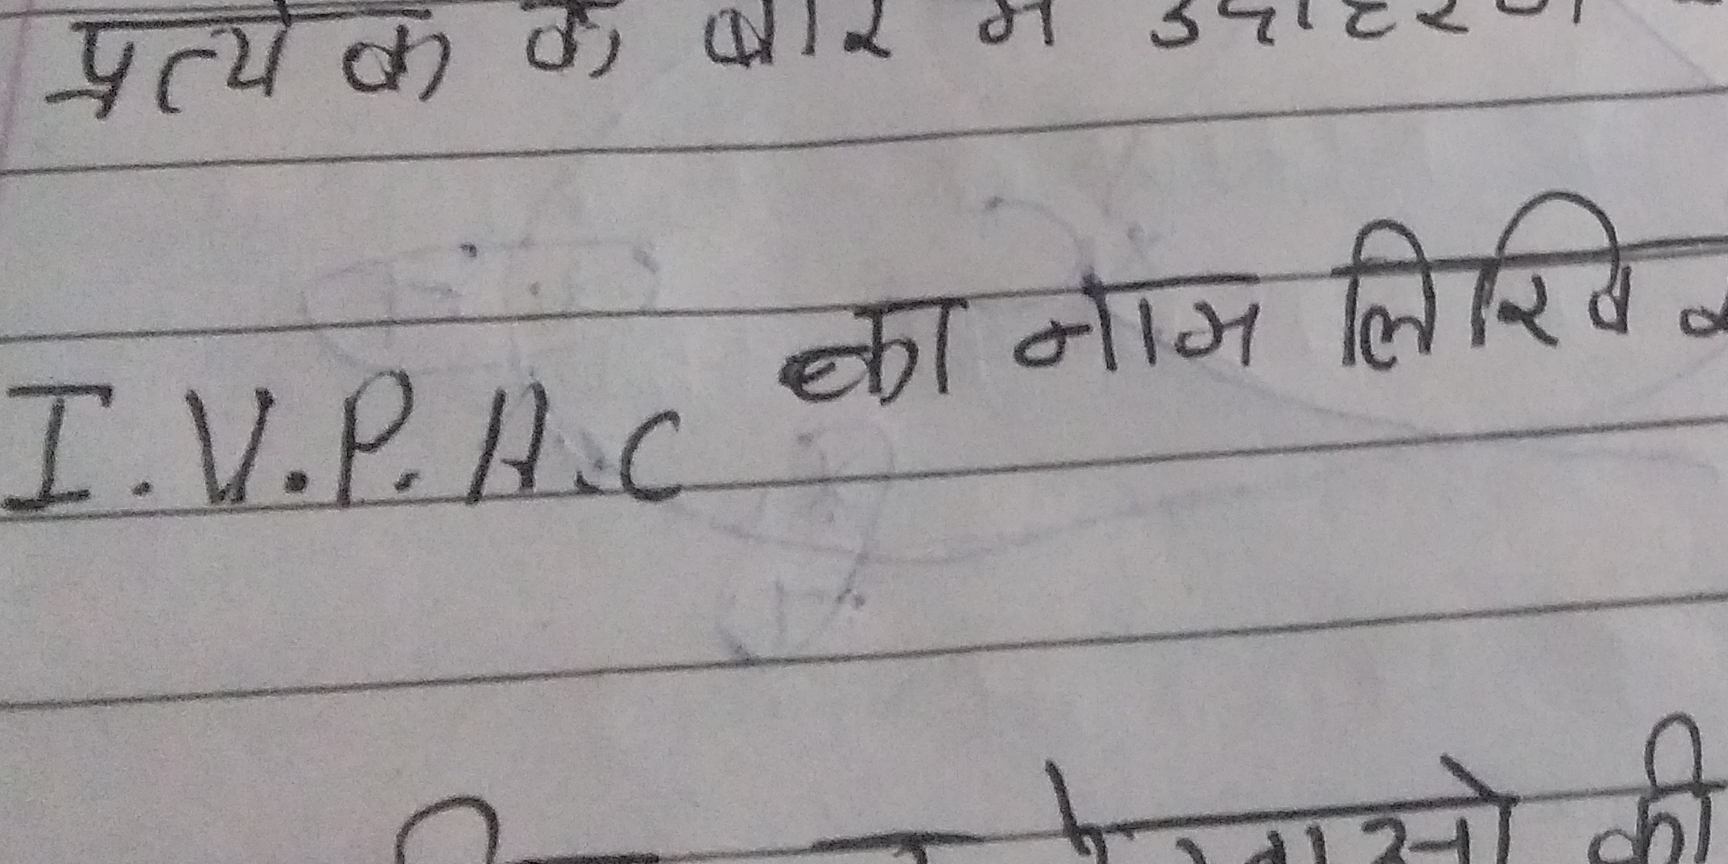 प्रत्येक के बारे में उदाहरण
I.V.P.A.C का नाम लिखि
की